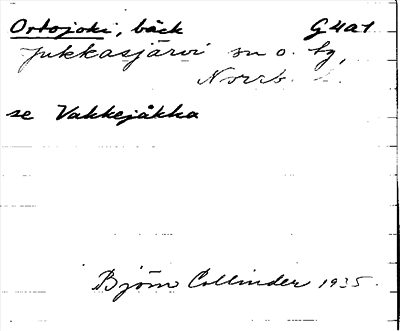 Ortojoki, bäck G4a1
Jukkasjärvi sn o. tg,
Norrb. L.
se Vakkejåkka
Björn Collinder 1935.